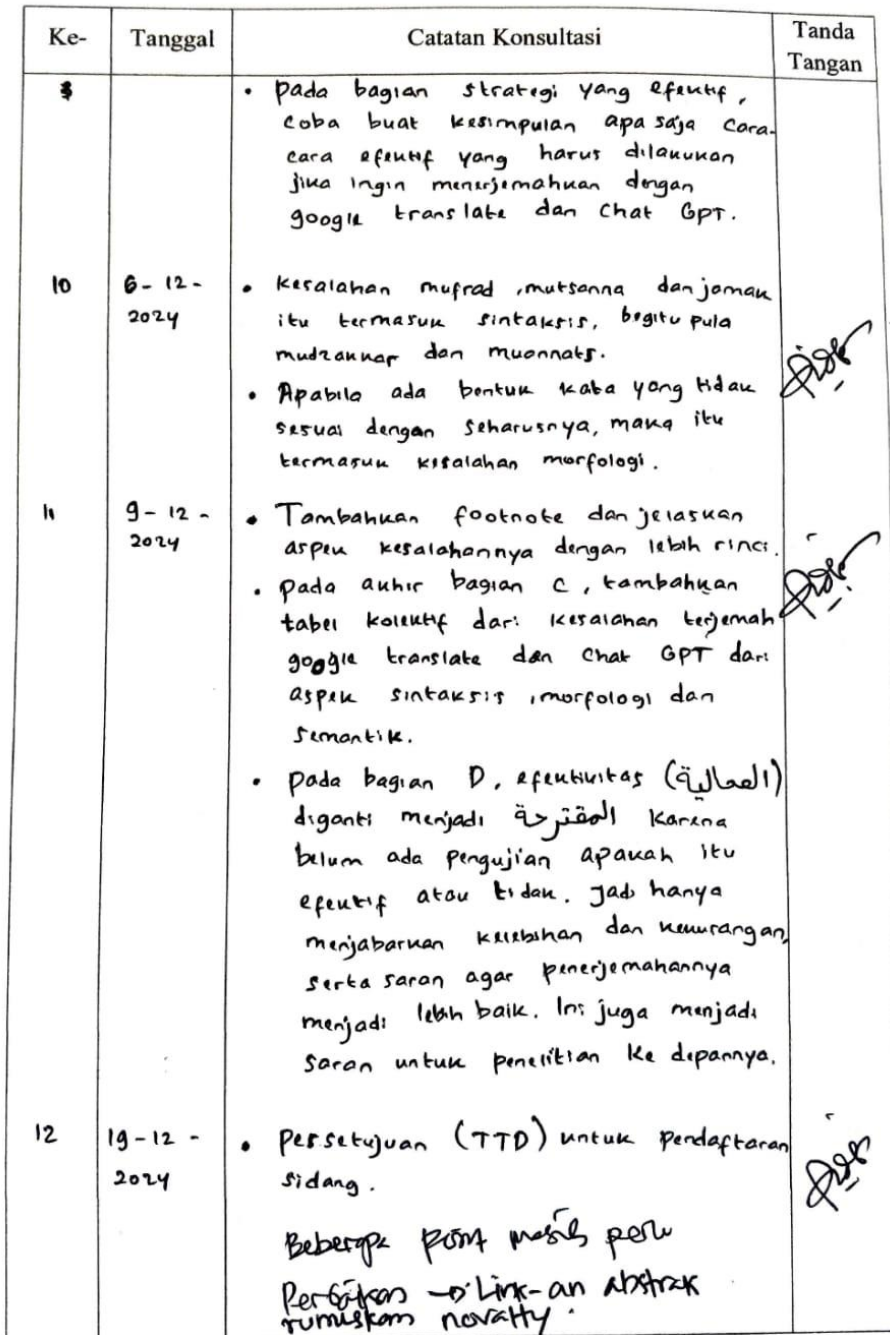 Ke- Tanggal Catatan Konsultasi Tanda Tangan
• pada bagian strategi yang efektif,
coba buat kesimpulan apa saja cara-
cara efektif yang harus dilakukan
jika ingin menerjemahkan dengan
google translate dan Chat GPT.
10 6-12-2024 • kesalahan mufrad, mutsanna dan jamak
itu termasuk sintaksis, begitu pula
mudzakkar dan muannats.
• Apabila ada bentuk kata yang tidak
sesuai dengan seharusnya, maka itu
termasuk kesalahan morfologi.
11 9-12-2024 • Tambahkan footnote dan jelaskan
aspek kesalahannya dengan lebih rinci.
• pada akhir bagian C, tambahkan
tabel kolektif dari kesalahan terjemah
google translate dan Chat GPT dari
aspek sintaksis, morfologi dan
semantik.
• pada bagian D, efektivitas (الفعالية)
diganti menjadi المقترحة karena
belum ada pengujian apakah itu
efektif atau tidak. Jadi hanya
menjabarkan kelebihan dan kekurangan,
serta saran agar penerjemahannya
menjadi lebih baik. Ini juga menjadi
saran untuk penelitian ke depannya.
12 19-12-2024 • persetujuan (TTD) untuk pendaftaran
sidang.
Beberapa point masih perlu
Perbaikan → Link-an abstrak
rumuskan novelty.